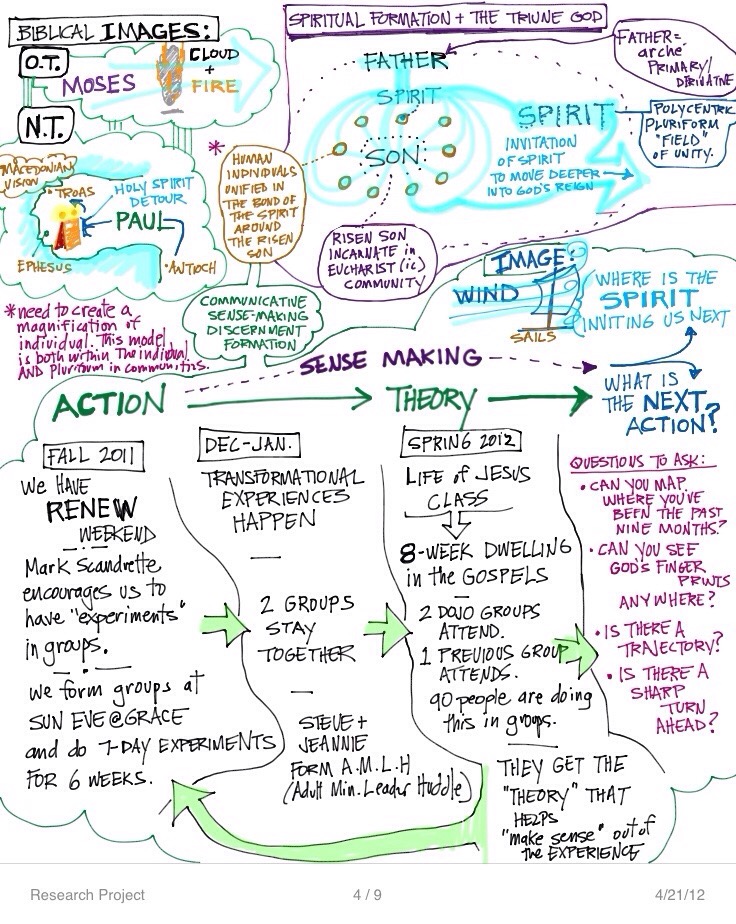 BIBLICAL IMAGES:
O.T.
MOSES
CLOUD
+
FIRE
N.T.
MACEDONIAN
VISION
TROAS
HOLY SPIRIT
DETOUR
PAUL
EPHESUS
ANTIOCH
*need to create a
magnification of
individual. This model
is both within The individual
AND Pluriform in communities.
SPIRITUAL FORMATION + THE TRIUNE GOD
FATHER
SPIRIT
SON
FATHER =
arche
PRIMARY/
DERIVATIVE
SPIRIT
INVITATION
OF SPIRIT
TO MOVE DEEPER
INTO GOD'S REIGN
POLYCENTRIC
PLURIFORM
"FIELD"
OF UNITY.
*
HUMAN
INDIVIDUALS
UNIFIED IN
THE BOND OF
THE SPIRIT
AROUND
THE RISEN
SON
RISEN SON
INCARNATE in
EUCHARIST (ic)
COMMUNITY
COMMUNICATIVE
SENSE-MAKING
DISCERNMENT
FORMATION
IMAGE:
WIND
SAILS
WHERE IS THE
SPIRIT
INVITING US NEXT
SENSE MAKING
ACTION
THEORY
WHAT IS
THE NEXT
ACTION?
FALL 2011
We HAVE
RENEW
WEEKEND
Mark Scandrette
encourages us to
have "experiments"
in groups.
we form groups at
SUN EVE@GRACE
and do 7-DAY EXPERIMENTS
FOR 6 WEEKS.
DEC-JAN.
TRANSFORMATIONAL
EXPERIENCES
HAPPEN
2 GROUPS
STAY
TOGETHER
STEVE +
JEANNIE
FORM A.M.L.H
(Adult Min. Leader Huddle)
SPRING 2012
LIFE of JESUS
CLASS
8-WEEK DWELLING
in the GOSPELS
2 DOJO GROUPS
ATTEND.
1 PREVIOUS GROUP
ATTENDS.
90 people are doing
this in groups.
THEY GET THE
"THEORY" THAT
HELPS
"make sense" out of
the EXPERIENCE
QUESTIONS TO ASK:
• CAN YOU MAP
WHERE YOU'VE
BEEN THE PAST
NINE MONTHS?
• CAN YOU SEE
GOD'S FINGER
PRINTS
ANYWHERE?
• IS THERE A
TRAJECTORY?
• IS THERE A
SHARP
TURN
AHEAD?
Research Project
4 / 9
4/21/12